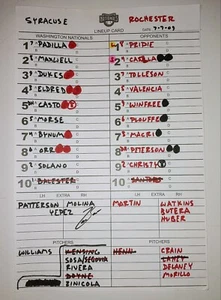 SYRACUSE ROCHESTER
LINEUP CARD 7-7-09
WASHINGTON NATIONALS OPPONENTS
1 PADILLA 1 PRIDIE
2 MAXWELL 2
3 DUKES 3 TOLLESON
4 ELDRED 4 VALENCIA
5 CASTO 5 WINFREE
6 MORSE 6 PLOUFFE
7 BYNUM 7 MACRI
8 ORR 8 PETERSON
9 SOLANO 9 CHRISTY
10 BALESTER 10
LH EXTRA RH LH EXTRA RH
PATTERSON MOLINA MARTIN WATKINS
YEPEZ BUTERA
HUBER
PITCHERS PITCHERS
WILLIAMS CRAIN
SOSA/SEGOVIA LAHEY
RIVERA DELANEY
MORILLO
ZINICOLA